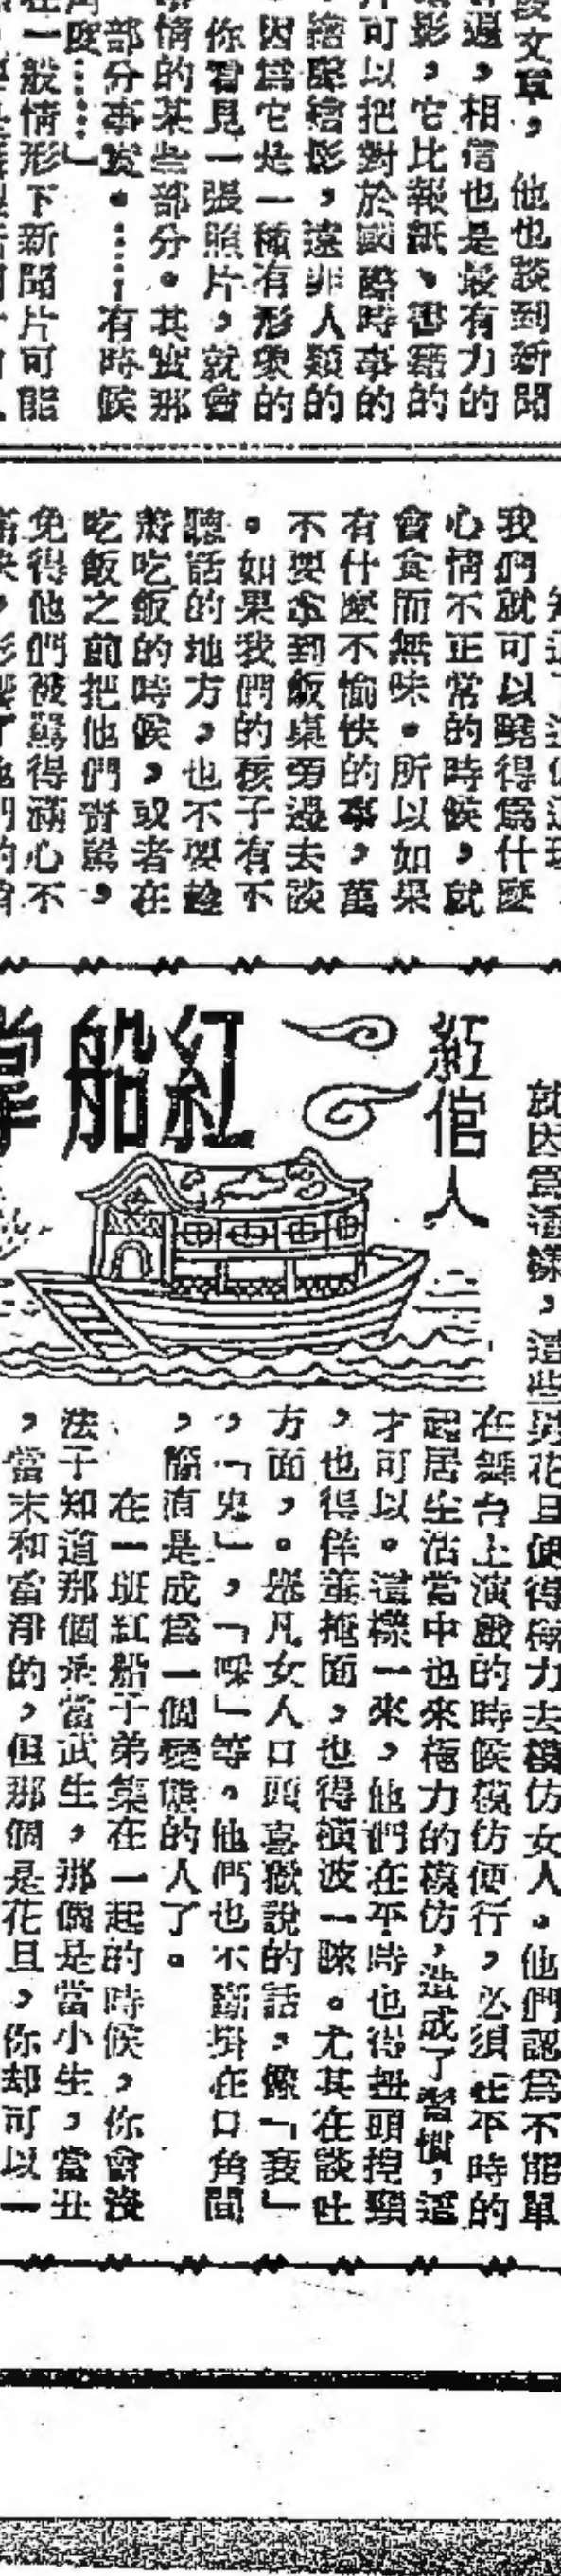 段文章，他也談到新聞
過，相信也是最有力的
影，它比報紙、書籍的
可以把對於國際時事的
繪聲繪影，遠非人類的
因為它是一種有形象的
你看見一張照片，就會
情的某些部分。其實那
部分事實。……有時候
度……」
在一般情形下新聞片可能
我們就可以曉得為什麼
心情不正常的時候，就
會食而無味。所以如果
有什麼不愉快的事，萬
不要拿到飯桌旁邊去談
。如果我們的孩子有不
聽話的地方，也不要趁
着吃飯的時候，或者在
吃飯之前把他們責罵，
免得他們被罵得滿心不
紅倌人
紅船掌
就因為這樣，這些男花旦便得極力去模仿女人。他們認為不能單
在舞台上演戲的時候模仿便行，必須在平時的
起居生活當中也來極力的模仿，造成了習慣，這
才可以。這樣一來，他們在平時也得扭頭擰頸
，也得佯羞掩面，也得橫波一睞。尤其在談吐
方面，。舉凡女人口頭喜歡說的話，像「衰」
，「鬼」，「啋」等。他們也不斷掛在口角間
，簡直是成為一個變態的人了。
在一班紅船子弟集在一起的時候，你會沒
法子知道那個是當武生，那個是當小生，當丑
，當末和當淨的，但那個是花旦，你却可以一